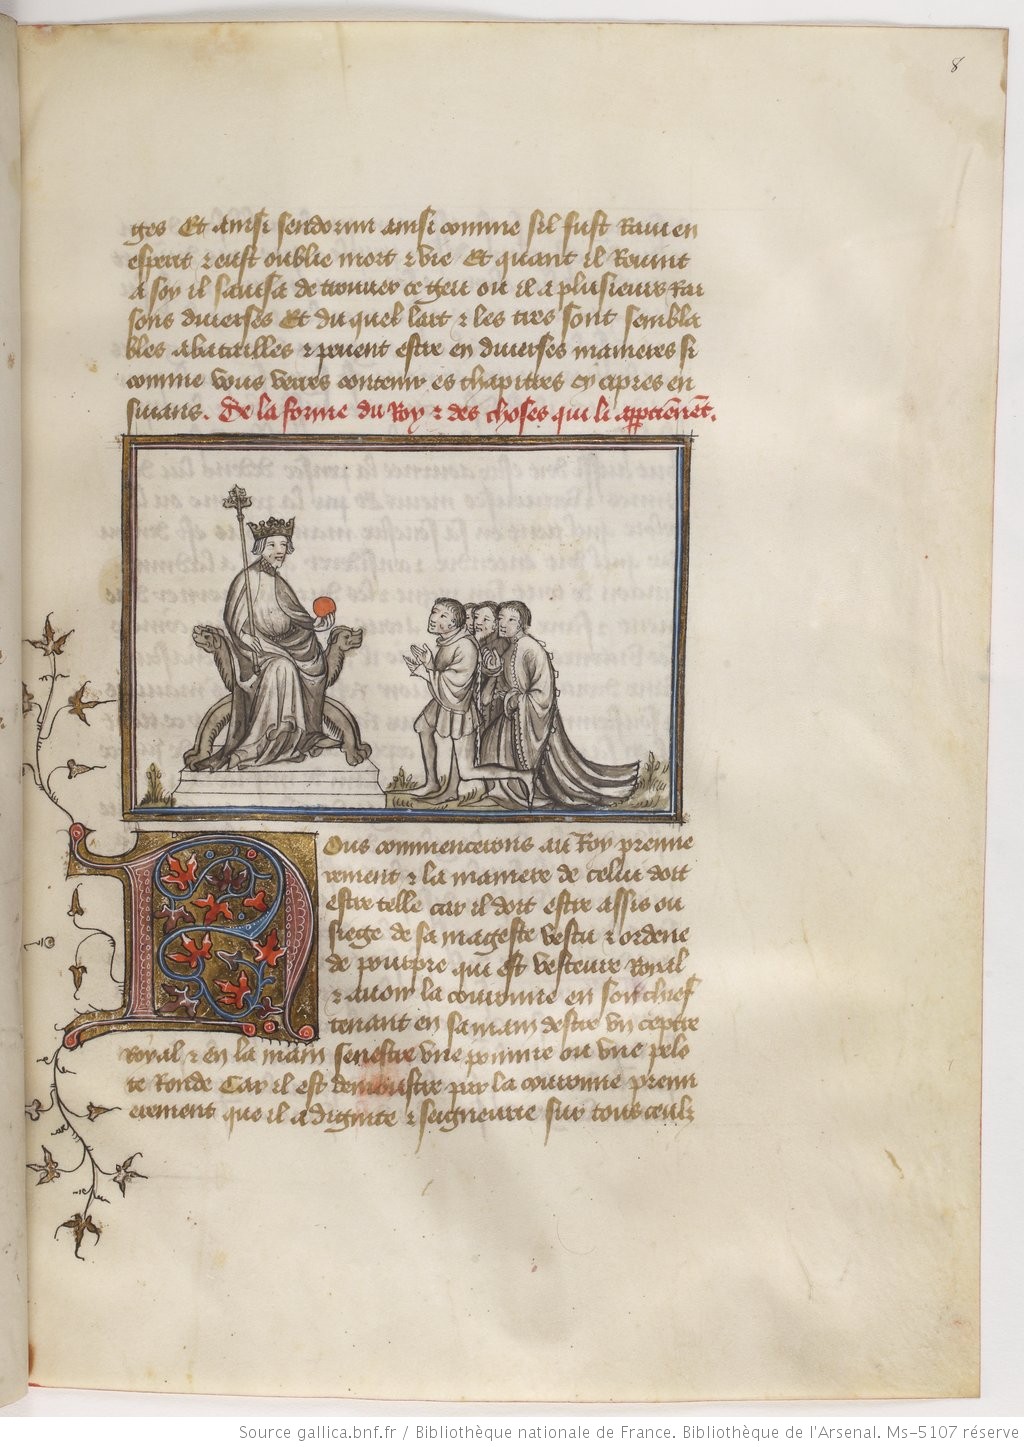 8
ges Et ainsi sendormi ainsi comme sil fust Raui en
esperit ⁊ eust oublie mort ⁊ vie Et quant il Reuint
a soy il sauisa de trouuer ce geu ou il a plusieurs Rai
sons diuerses Et du quel lart ⁊ les tires sont sembla
bles a batailles ⁊ peuent estre en diuerses manieres si
comme vous verres contenir es chapitres cy apres en
suians. De la forme du Roy ⁊ des choses qui li apptienēt.
Nous commencerons au Roy premie
rement ⁊ la maniere de celui doit
estre telle car il doit estre assis ou
siege de sa mageste vestu ⁊ ordene
de pourpre qui est vesteure Royal
⁊ auoir la couronne en son chief
tenant en sa main destre vn ceptre
Royal ⁊ en la main senestre vne pomme ou vne pelo
te Ronde Car il est demoustre par la couronne premi
erement que il a dignite ⁊ seigneurie sur tous ceulz
Source gallica.bnf.fr / Bibliothèque nationale de France. Bibliothèque de l'Arsenal. Ms-5107 réserve